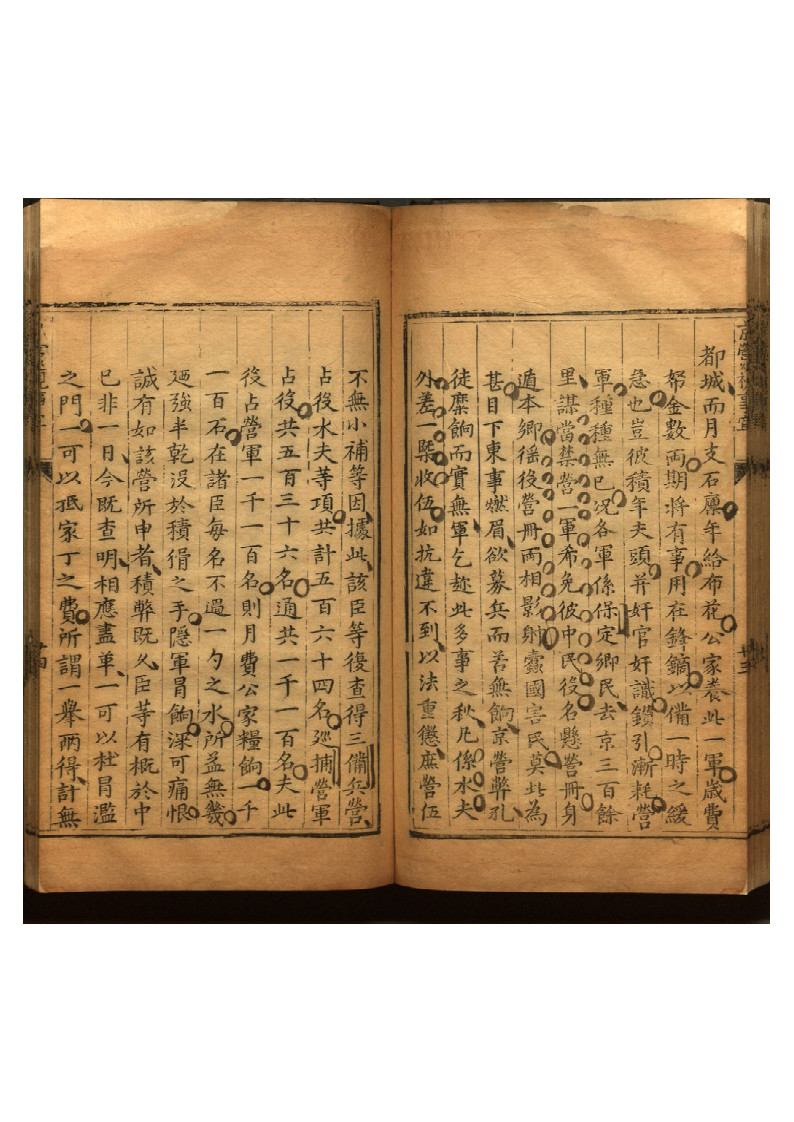 都城而月支石廩年給布花公家養此一軍歲費
帑金數兩期將有事用在鋒鏑以備一時之緩
急也豈彼積年夫頭并奸官奸識鑽引漸耗營
軍種種無已況各軍係保定鄉民去京三百餘
里謀當禁營一軍希免彼中民役名懸營冊身
遁本鄉徭役營冊兩相影射蠹國害民莫此為
甚目下東事燃眉欲募兵而苦無餉京營弊孔
徒糜餉而實無軍乞趂此多事之秋凡係水夫
外差一槩收伍如抗違不到以法重懲庶營伍
不無小補等因據此該臣等復查得三備兵營
占役水夫等項共計五百六十四名巡捕營軍
占役共五百三十六名通共一千一百名夫此
役占營軍一千一百名則月費公家糧餉一千
一百石在諸臣每名不過一勺之水所益無幾
廼強半乾沒於積猾之手隱軍冐餉深可痛恨
誠有如該營所申者積弊既久臣等有概於中
已非一日今既查明相應盡革一可以杜冐濫
之門一可以抵家丁之費所謂一舉兩得計無
廿三
廿四